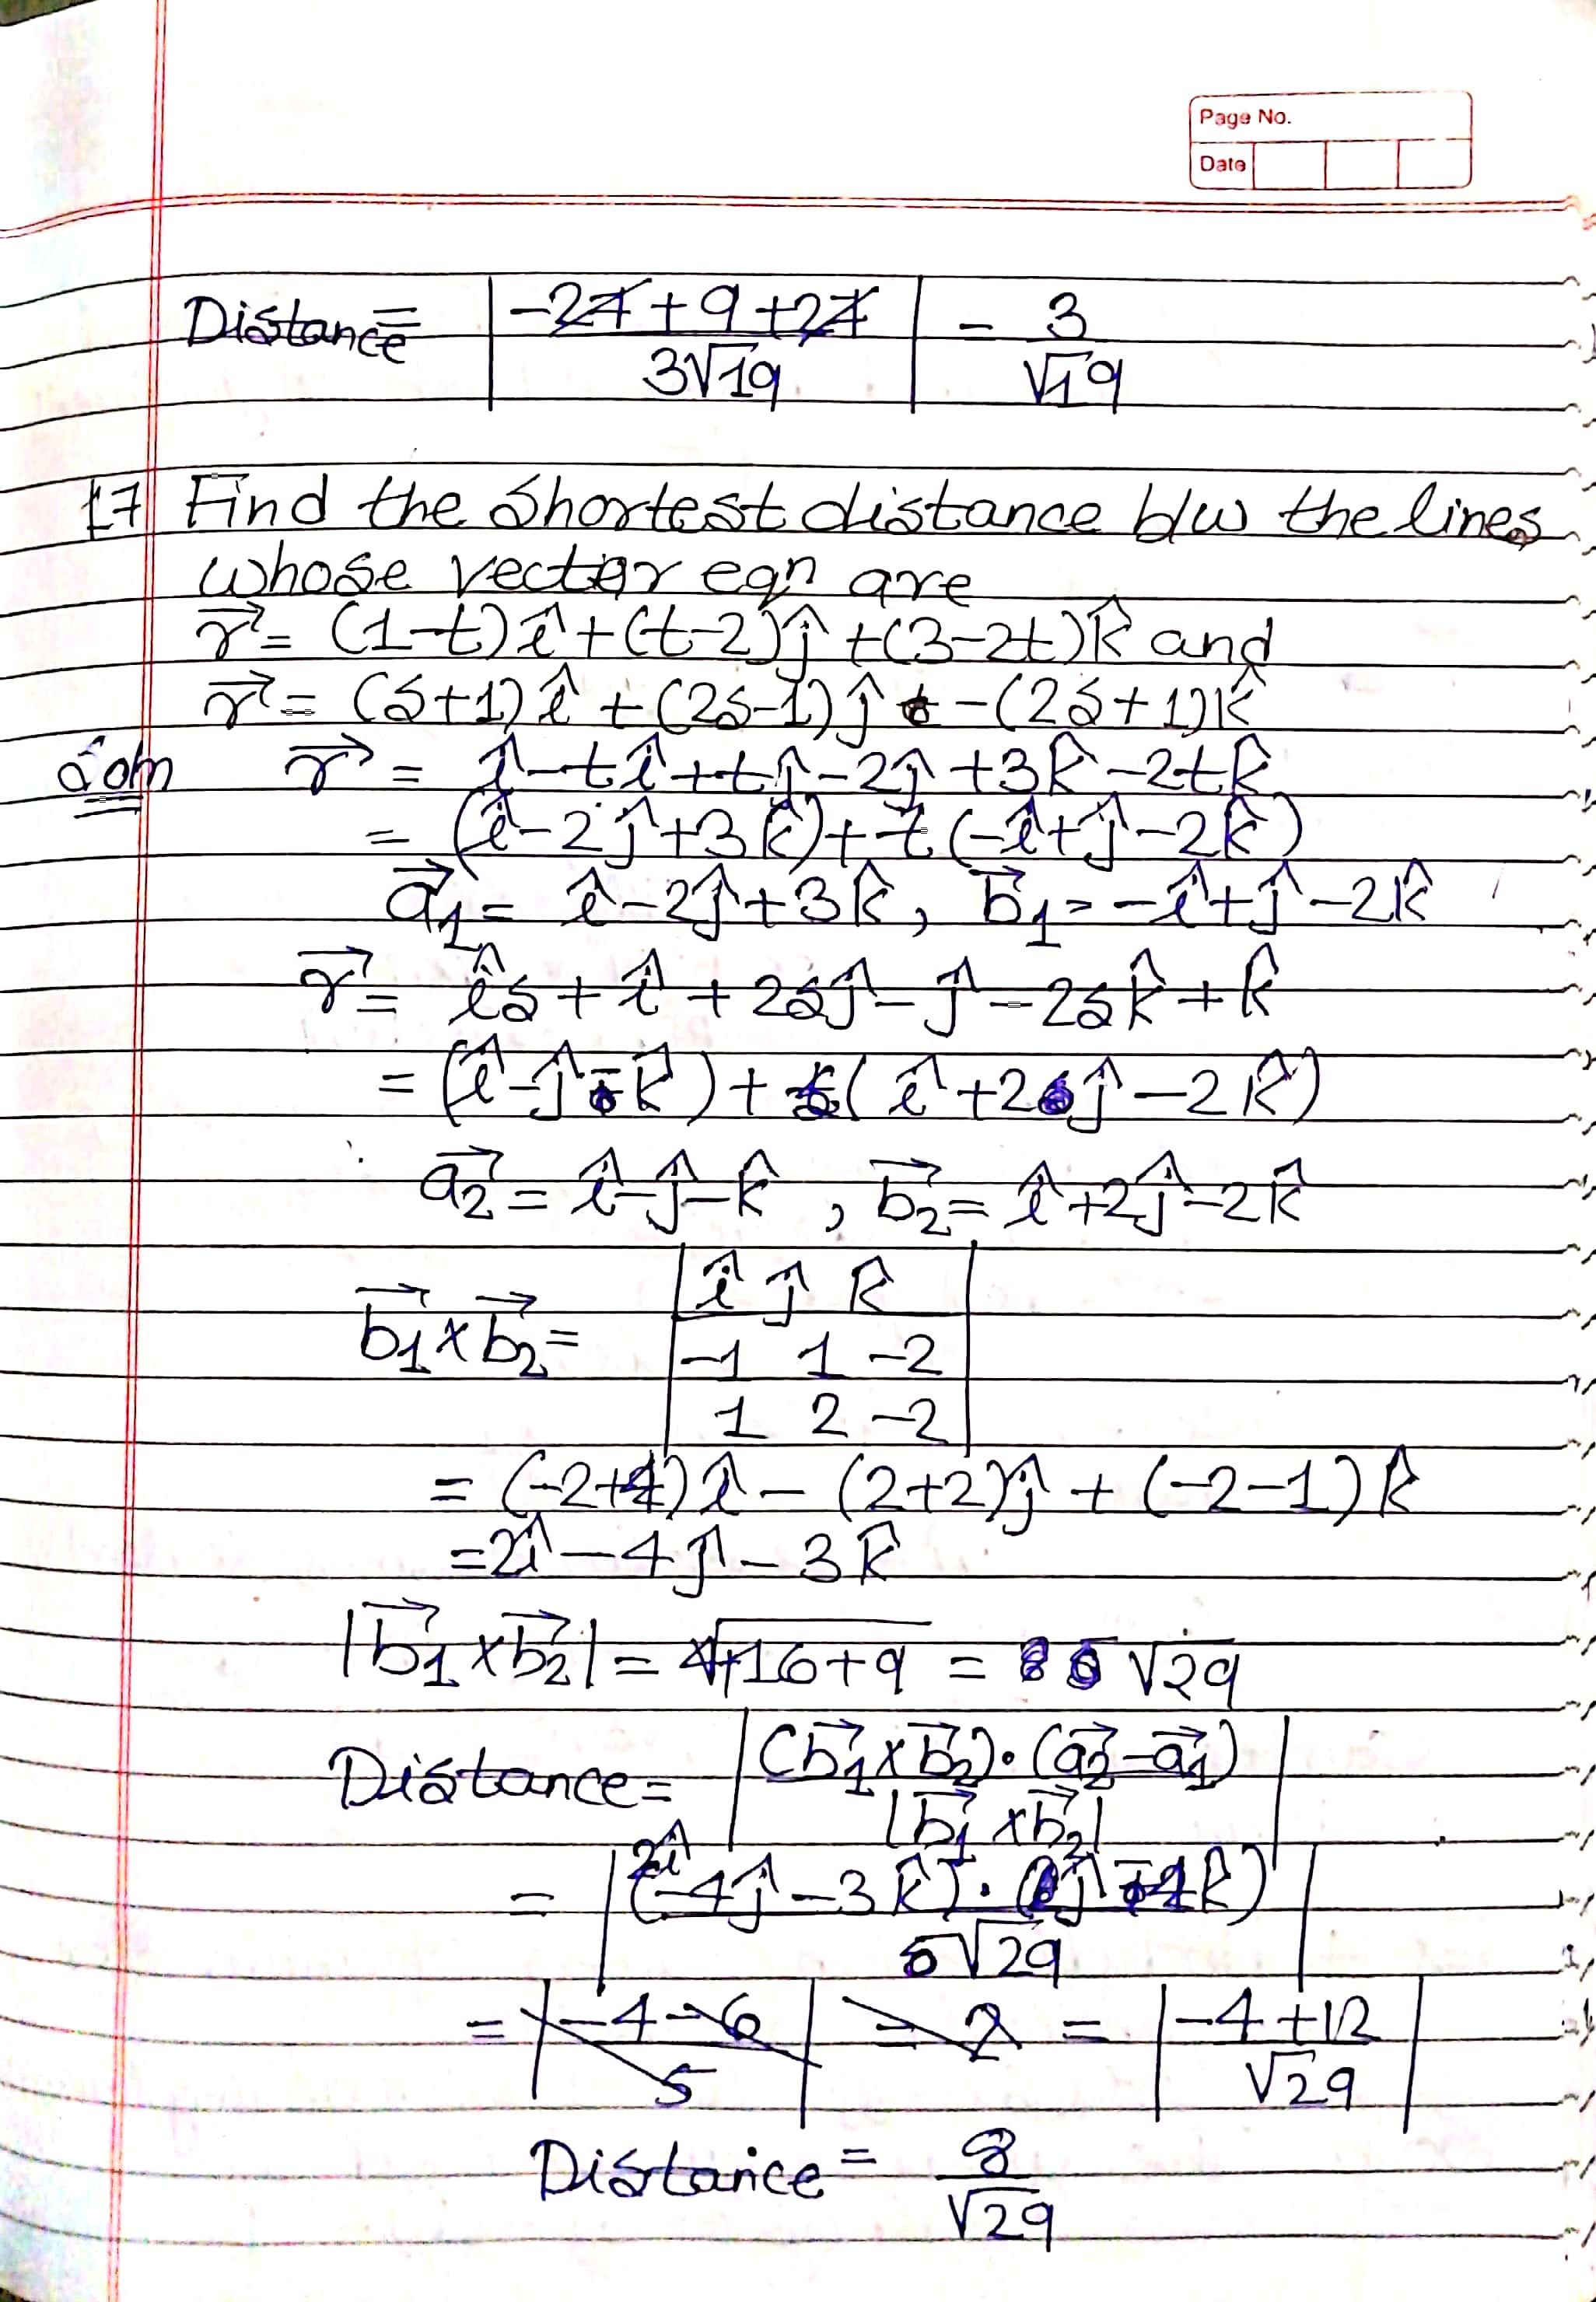 Page No.
Date
Distance = |(-27+9+27)/(3√19)| = 3/√19
17 Find the shortest distance b/w the lines
whose vector eqn are
r⃗ = (1-t)î+(t-2)ĵ+(3-2t)k̂ and
r⃗ = (s+1)î+(2s-1)ĵ -(2s+1)k̂
Soln r⃗ = î-tî+tĵ-2ĵ+3k̂-2tk̂
= (î-2ĵ+3k̂)+t(-î+ĵ-2k̂)
a⃗₁ = î-2ĵ+3k̂, b⃗₁ = -î+ĵ-2k̂
r⃗ = îs+î+2sĵ-ĵ-2sk̂+k̂
= (î-ĵ-k̂)+s(î+2ĵ-2k̂)
a⃗₂ = î-ĵ-k̂, b⃗₂ = î+2ĵ-2k̂
b⃗₁×b⃗₂ = | î ĵ k̂ |
| -1 1 -2 |
| 1 2 -2 |
= (-2+4)î-(2+2)ĵ+(-2-1)k̂
= 2î-4ĵ-3k̂
|b⃗₁×b⃗₂| = √4+16+9 = √29
Distance = |(b⃗₁×b⃗₂)·(a⃗₂-a⃗₁)/|b⃗₁×b⃗₂||
= |(2î-4ĵ-3k̂)·(ĵ-4k̂)/√29|
= |(-4-6)/5| = 2 = |(-4+12)/√29|
Distance = 8/√29